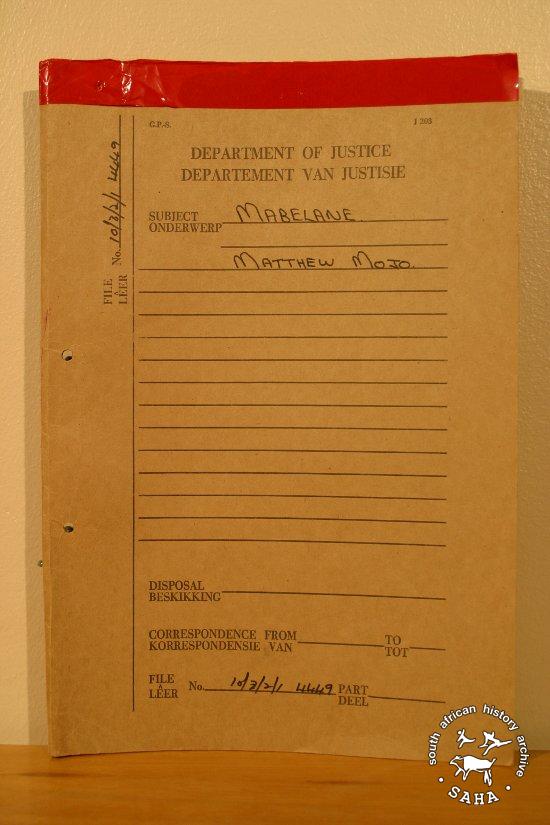 G.P.-S. J 203
DEPARTMENT OF JUSTICE
DEPARTEMENT VAN JUSTISIE
SUBJECT
ONDERWERP
MABELANE.
MATTHEW MOJO.
FILE
LÊER
No. 10/3/2/1 4449
DISPOSAL
BESKIKKING
CORRESPONDENCE FROM TO
KORRESPONDENSIE VAN TOT
FILE
LÊER
No. 10/3/2/1 4449
PART
DEEL
south african history archive
· SAHA ·